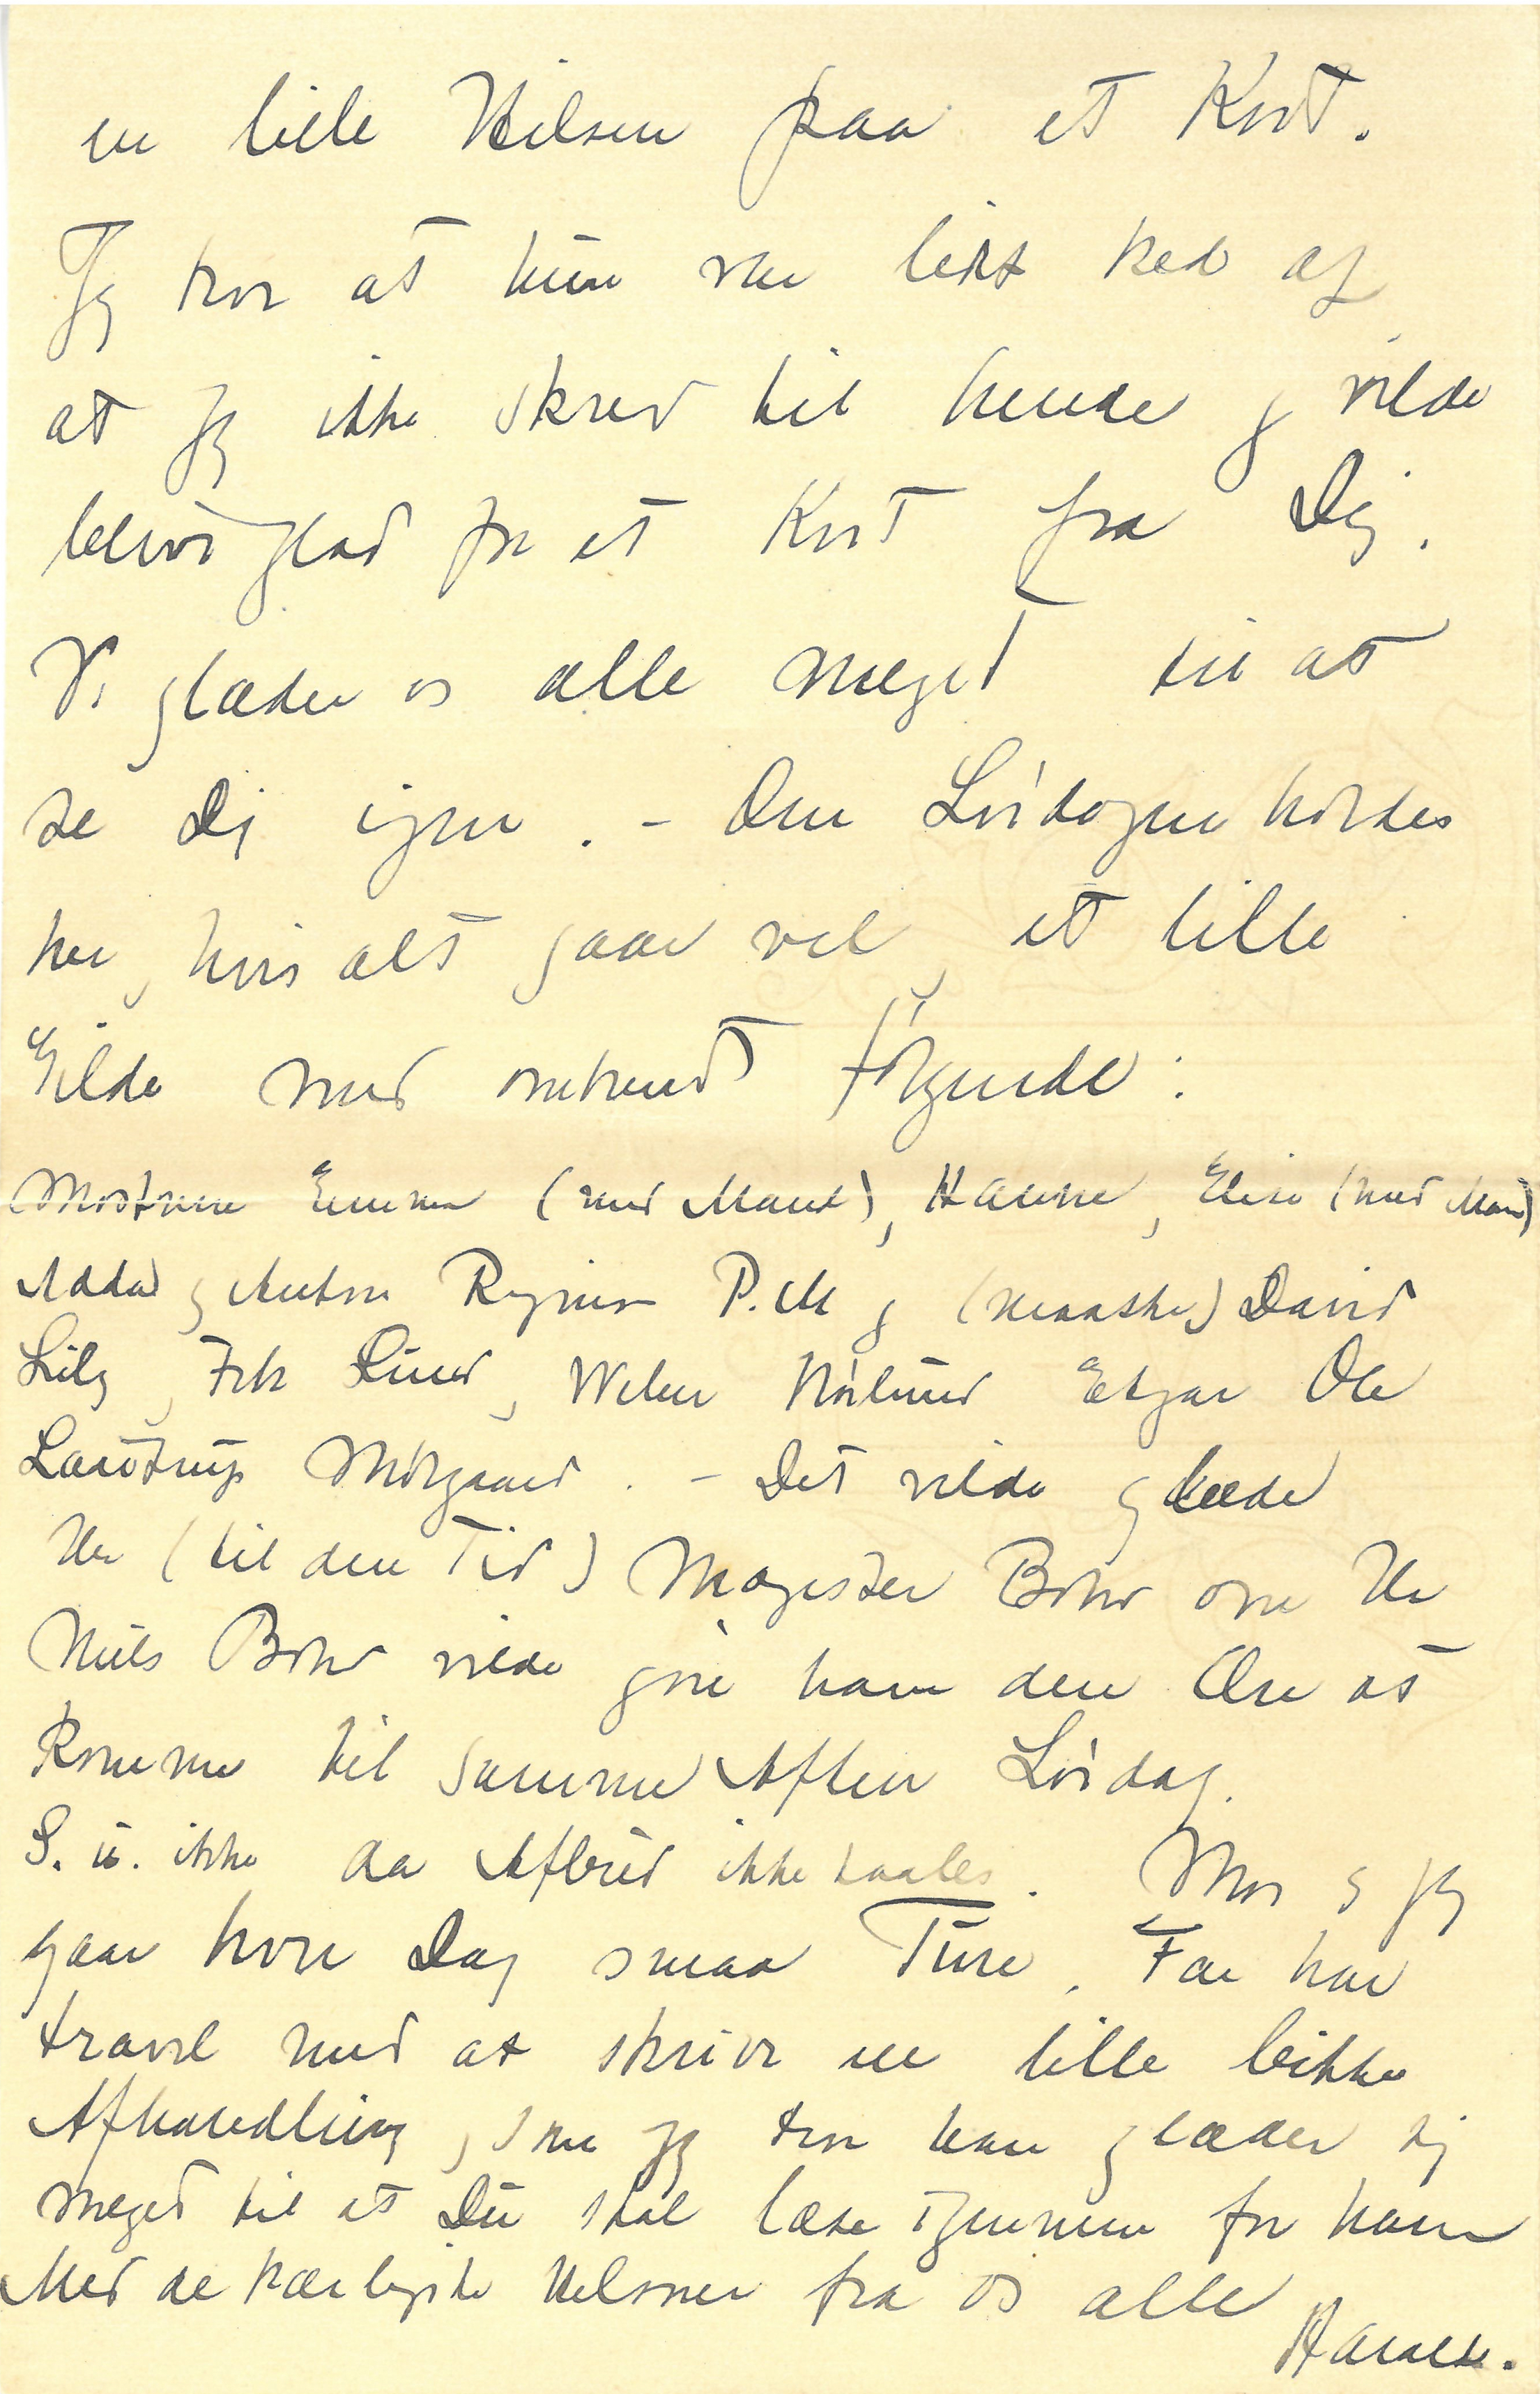 en lille Hilsen paa et Kort.
Jeg tror at hun var lidt ked af
at jeg ikke skrev til hende og vilde
blive glad for et Kort fra Dig.
Vi glæder os alle meget til at
se Dig igen. - Om Lördagen holdes
her, hvis alt gaar vel, et lille
Gilde med omtrent følgende:
Mostrene Emma (med Mand), Hanne, Elise (med Mand)
Adda og Anton Regnar P.M og (maaske) David
Lily, Frk Lund, Weber Nörlund Edgar Ole
Laustrup Mölgaard. - Det vilde glæde
Hr (til den Tid) Magister Bohr om Hr
Niels Bohr vilde göre ham den Ære at
komme til samme Aften Lördag.
S. u. ikke da Afbud ikke taales. Mor og jeg
gaar hver Dag smaa Ture. Far har
travl med at skrive en lille bitte
Afhandling, som jeg tror han glæder sig
meget til at Du skal læse igennem for ham
Med de kærligste Hilsner fra os alle
Harald.